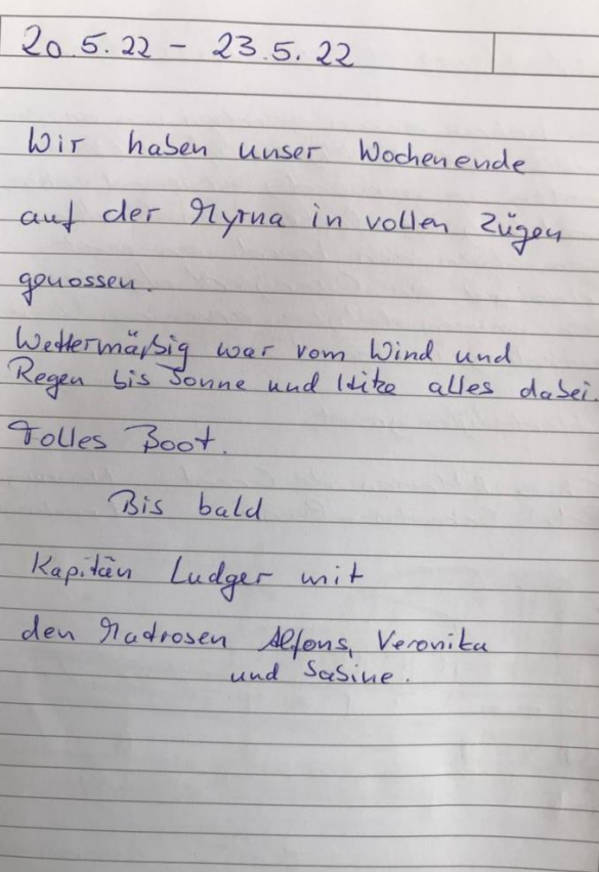 20.5.22 - 23.5.22
Wir haben unser Wochenende
auf der Myrna in vollen Zügen
genossen.
Wettermäßig war vom Wind und
Regen bis Sonne und Hitze alles dabei.
Tolles Boot.
Bis bald
Kapitän Ludger mit
den Madrosen Alfons, Veronika
und Sabine.